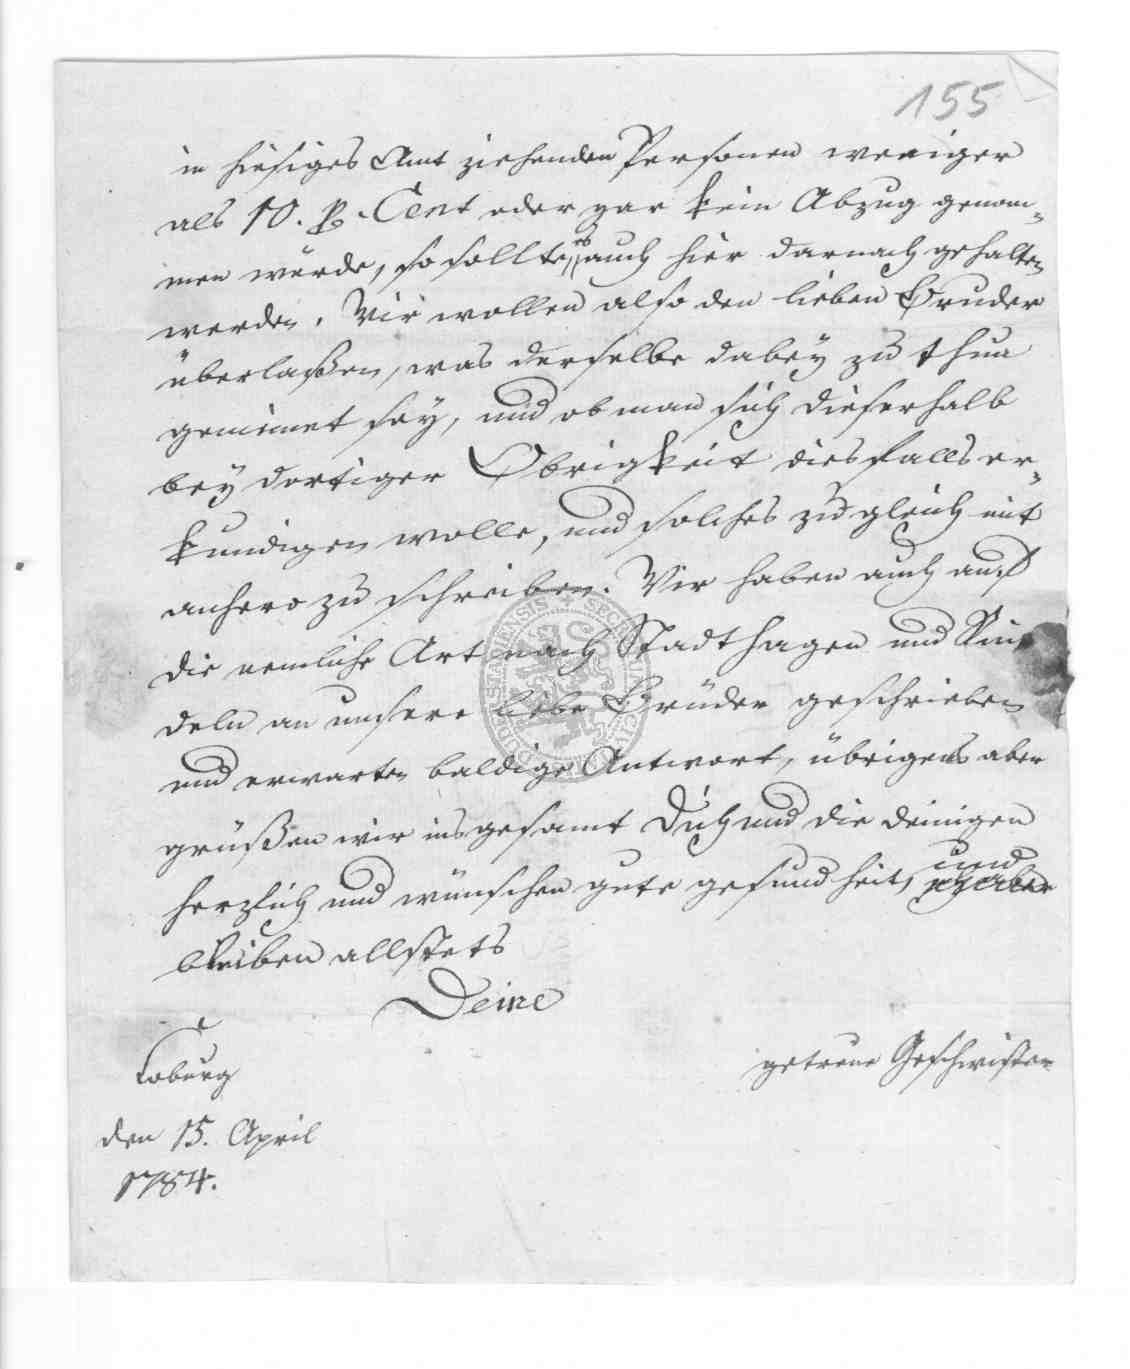 155
in hiesiges Amt ziehenden Personen weniger
als 10. p. Cent oder gar kein Abzug genom-
men würde, so sollte es auch hier darnach gehalten
werden. Wir wollen also den lieben Bruder
überlaßen, was derselbe dabey zu thun
gemeinet sey, und ob man sich dieserhalb
bey dortiger Obrigkeit diesfalls er-
kundigen wolle, und solches zugleich mit
anhero zu schreiben. Wir haben auch auf
die nemliche Art nach Stadthagen und Rin
deln an unsere liebe Brüder geschrieben
und erwarten baldige Antwort, übrigens aber
grüßen wir insgesamt Dich und die deinigen
herzlich und wünschen gute gesundheit, und
bleiben allstets
Deine
getreue Geschwister
Coburg
den 15. April
1784.